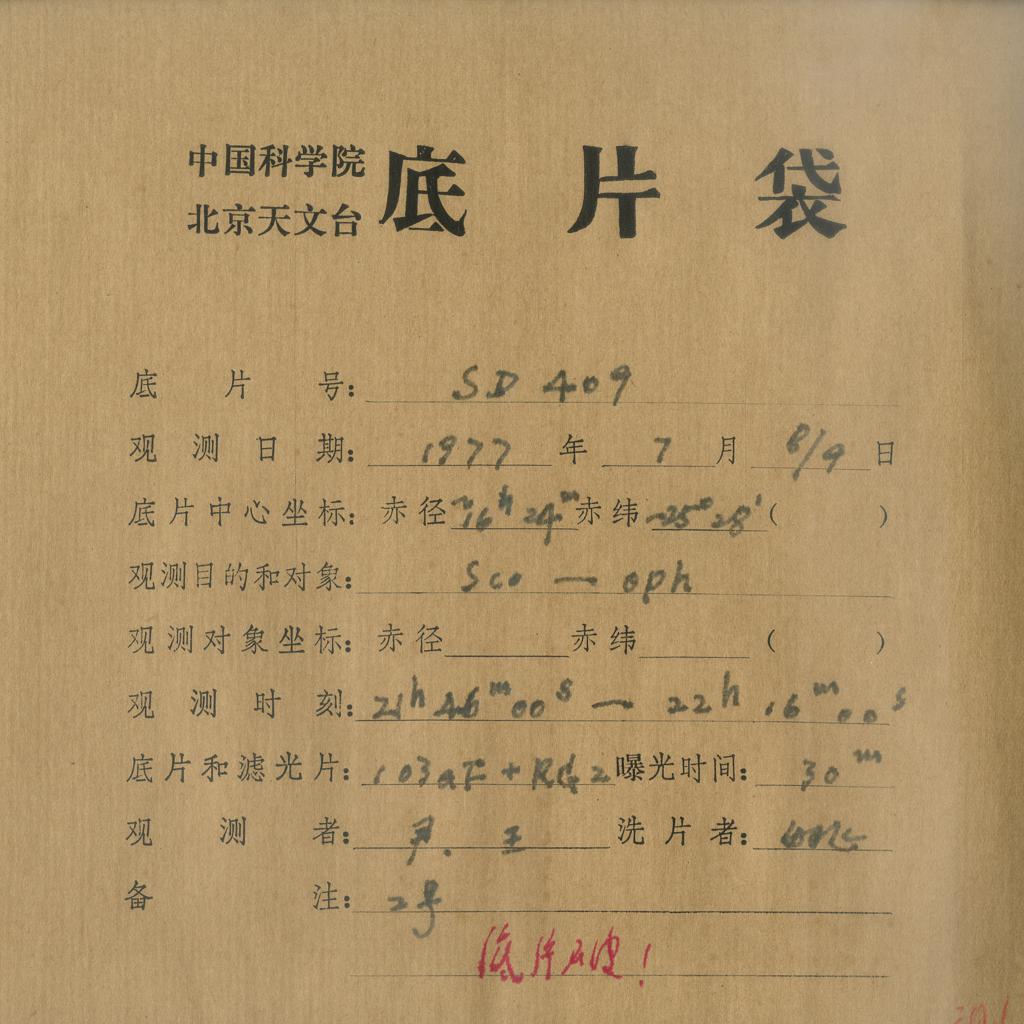 中国科学院
北京天文台
底片袋
底片号： SD 409
观测日期： 1977 年 7 月 8/9 日
底片中心坐标： 赤径 ~16h 24m 赤纬 -25° 28′ ( )
观测目的和对象： Sco — oph
观测对象坐标： 赤径 赤纬 ( )
观测时刻： 21h 46m 00s — 22h 16m 00s
底片和滤光片： 103aF + RG2 曝光时间： 30m
观测者： 尹. 王 洗片者：
备注： 2号
底片破!